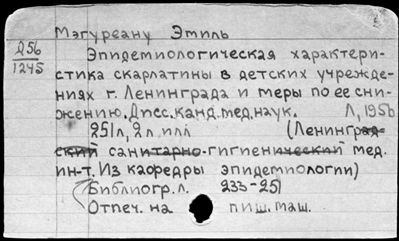 Мэгуреану Эмиль
256
1245
Эпидемиологическая характери-
стика скарлатины в детских учрежде-
ниях г. Ленинграда и меры по ее сни-
жению. Дисс. канд. мед. наук. Л, 1956
251 л, 2 л. илл (Ленинград-
ский санитарно-гигиенический мед.
ин-т. Из кафедры эпидемиологии)
Библиогр. л. 233-251
Отпеч. на пиш. маш.